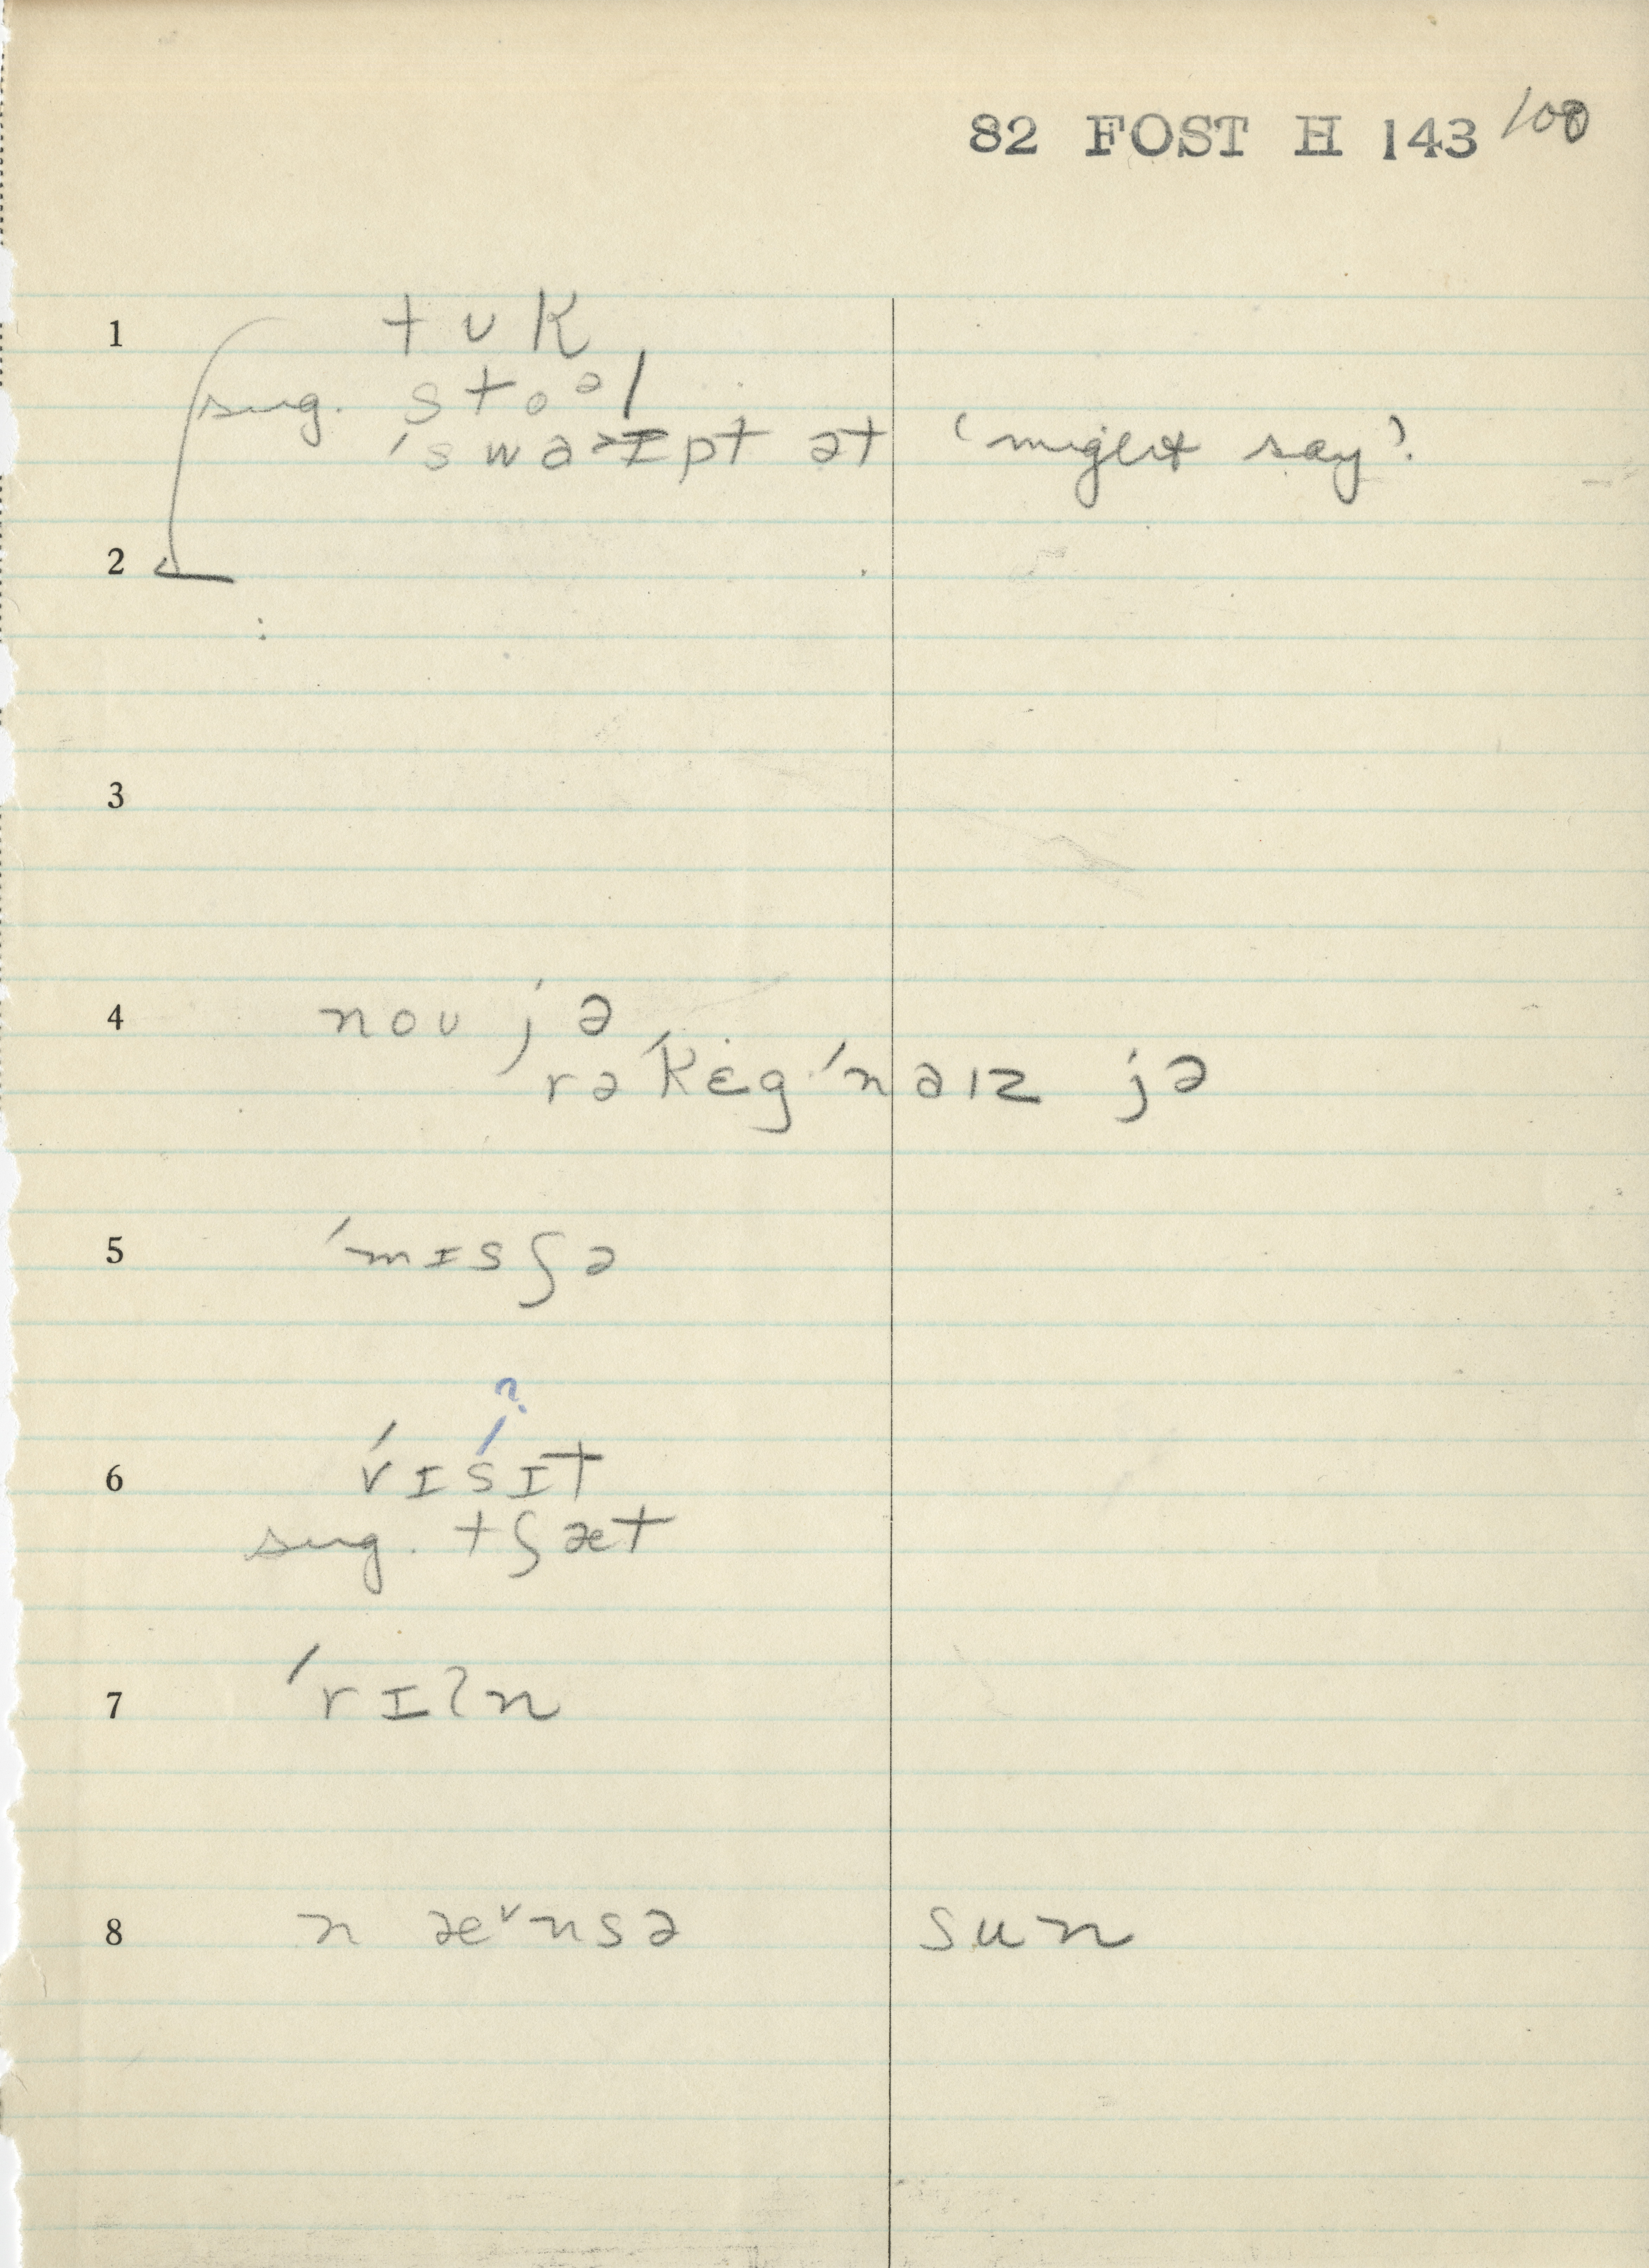 82 FOST H 143 100
1 tʊk
sug. stoᵊl
ˈswaɪpt ət 'might say'.
2
3
4 noʊ jə
rəˈkɛgˈnaɪz jə
5 ˈmɪsʃə
?
6 ˈrɪsˈɪt
sug. tʃæt
7 ˈrɪʔn
8 n æ˅nsə sun